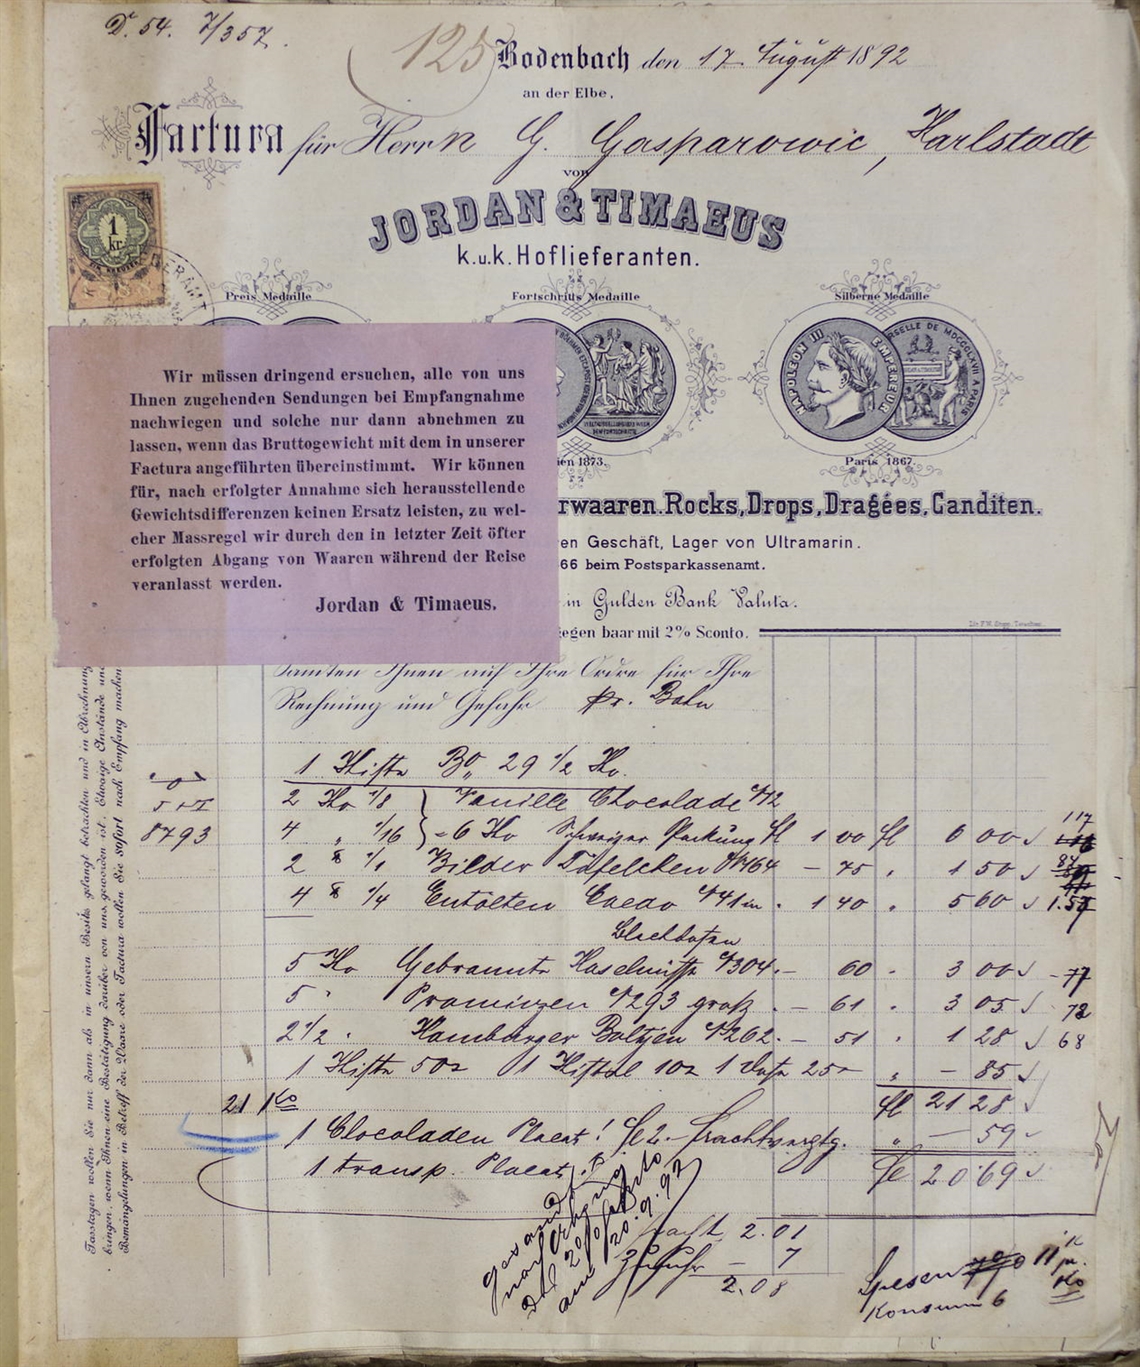 Dr. 54. 7/357.
125
Bodenbach den 17 August 1892
an der Elbe.
Factura für Herrn G. Gasparowic, Karlstadt
von
JORDAN & TIMAEUS
k.u.k. Hoflieferanten.
1
kr.
Preis Medaille
Fortschritts Medaille
Silberne Medaille
NAPOLEON III EMPEREUR
RSELLE DE MDCCCLXVII A PARIS
ien 1873.
Paris 1867.
Wir müssen dringend ersuchen, alle von uns
Ihnen zugehenden Sendungen bei Empfangnahme
nachwiegen und solche nur dann abnehmen zu
lassen, wenn das Bruttogewicht mit dem in unserer
Factura angeführten übereinstimmt. Wir können
für, nach erfolgter Annahme sich herausstellende
Gewichtsdifferenzen keinen Ersatz leisten, zu wel-
cher Massregel wir durch den in letzter Zeit öfter
erfolgten Abgang von Waaren während der Reise
veranlasst werden.
Jordan & Timaeus.
rwaaren. Rocks, Drops, Dragées, Canditen.
en Geschäft, Lager von Ultramarin.
66 beim Postsparkassenamt.
in Gulden Bank Valuta.
egen baar mit 2% Sconto.
Sandten Ihnen auf Ihre Ordre für Ihre
Rechnung und Gefahr pr. Bahn
1 Kiste Bo. 29 1/2 Ko.
2 Ko 1/8 Vanille Chocolade № 12
8793 4 " 1/16 = 6 Ko Packung fl 1 00 fl 6 00
2 1/1 Bilder Täfelchen № 464 - 75 1 50
4 1/4 Entölten Cacao № 41 in 1 40 5 60
Blechdosen
5 Ko Gebrannte Haselnüsse № 304. - 60 3 00 77
5 " Prominzen № 293 groß - 61 3 05 72
2 1/2 " Hamburger Boltjen № 262. - 51 1 28 68
1 Kiste 50 1 Kistel 10 1 Dose 25 - 85
21 Ko fl 21 28
1 Chocoladen Placat! fl 2.- Frachtvergtg. " - 59
1 transp. Placat fl 20 69
Fracht 2.01
Zufuhr - 7
2.08
am 20.9.92
Spesen 11 kr
pr.
Ko
Konsum 6
Fasstagen wollen Sie nur dann als in unsern Besitz gelangt betrachten und in Abrechnung
bringen, wenn Ihnen eine Bestätigung darüber von uns geworden ist. Etwaige Anstände und
Bemängelungen in Betreff der Waare oder Factura wollen Sie sofort nach Empfang machen